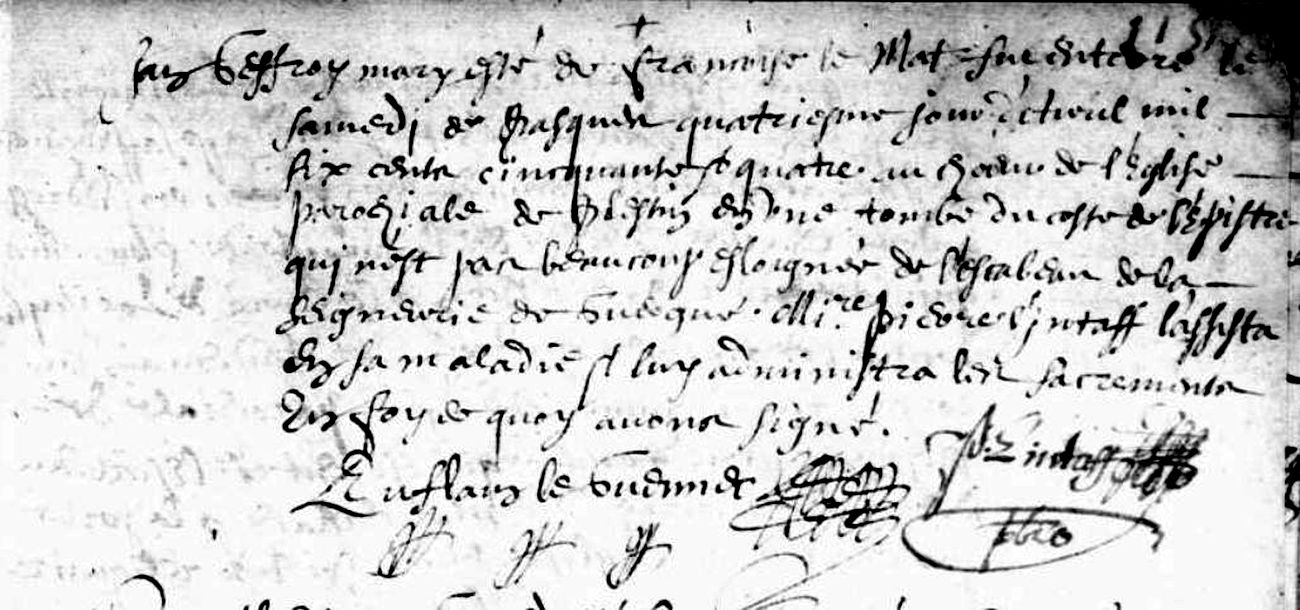 Jan Geffroy mary esté de francoise le Mat fut enterré le
samedi de pasques quatriesme jour d'apvril mil
six cents cinquante et quatre au choeur de l'eglise
parochiale de plestin en une tombe du costé de l'epistre
qui n'est pas beaucoup esloignée de l'escabeau de la
seigneurie de . Mire pierre l'intaff l'assista
en sa maladie et luy administra les sacrements
En foy de quoy avons signé.
P. L'intaff
Enflam le Guennec
pbre